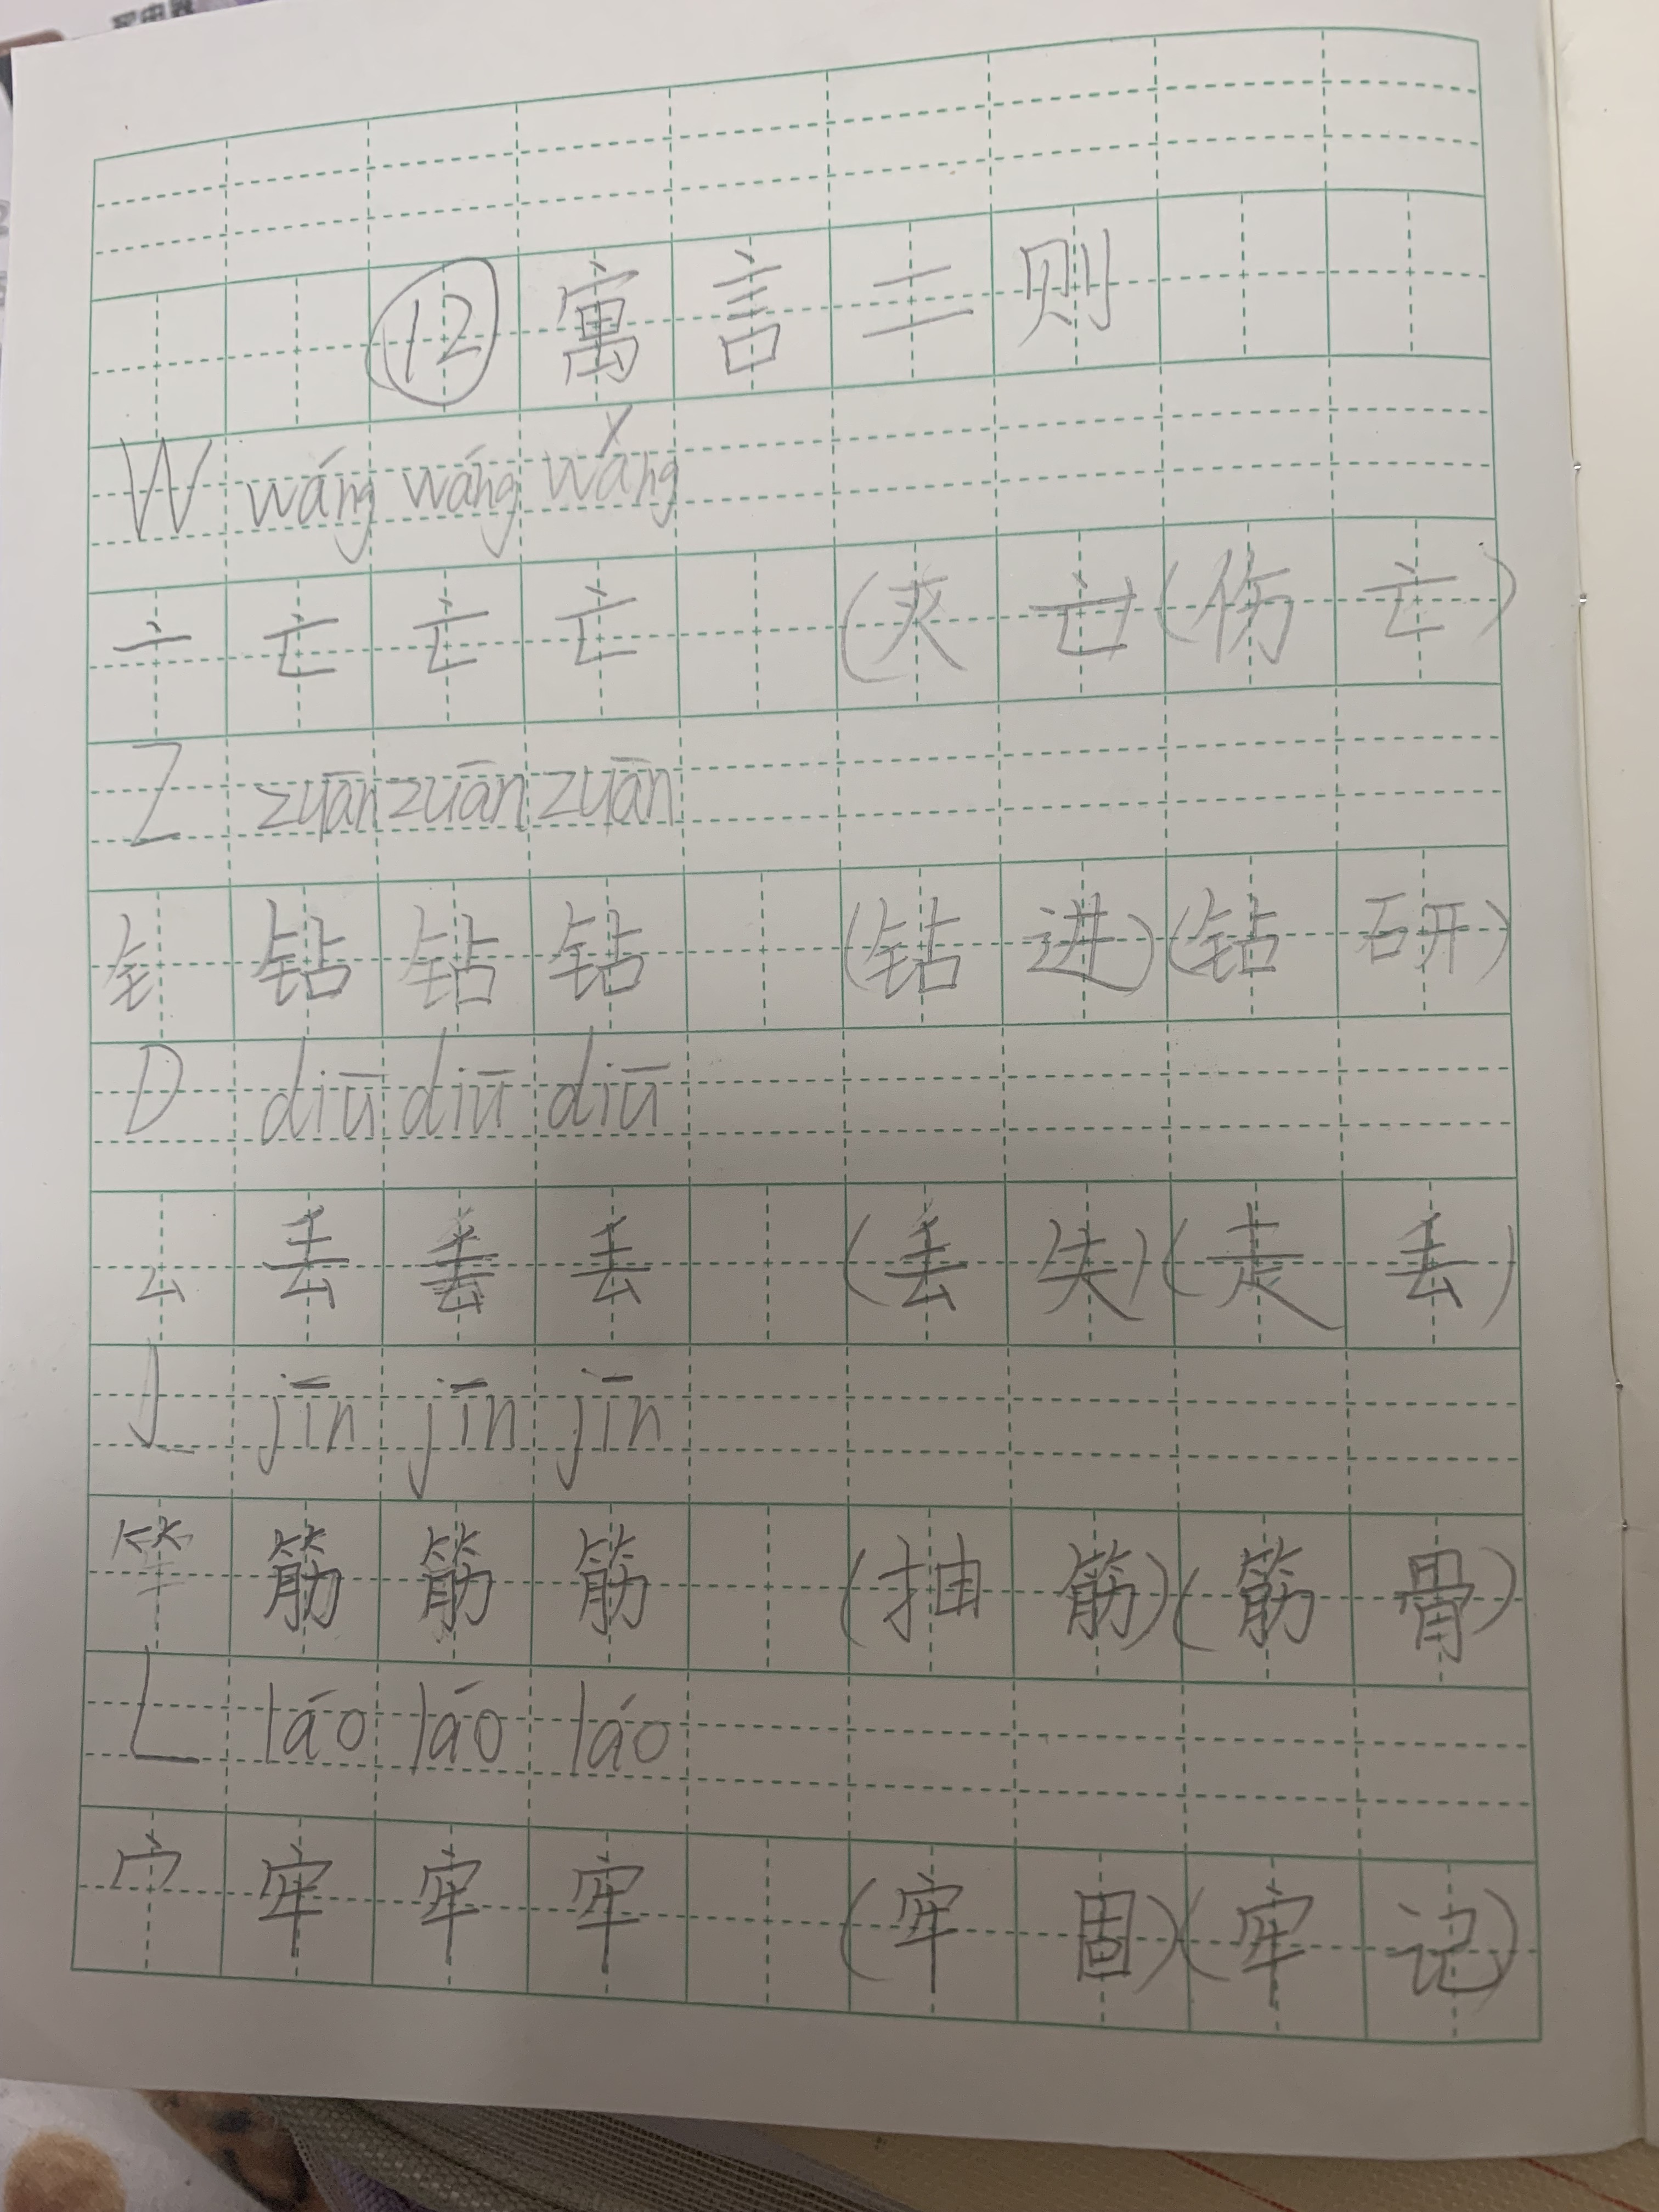 ⑫寓言二则
W wáng wáng wǎng
亠 亡 亡 亡 (灭亡)(伤亡)
Z zuān zuān zuān
钅 钻 钻 钻 (钻进)(钻研)
D diū diū diū
厶 丢 丢 丢 (丢失)(走丢)
J jīn jīn jīn
⺮ 筋 筋 筋 (抽筋)(筋骨)
L láo láo láo
宀 牢 牢 牢 (牢固)(牢记)